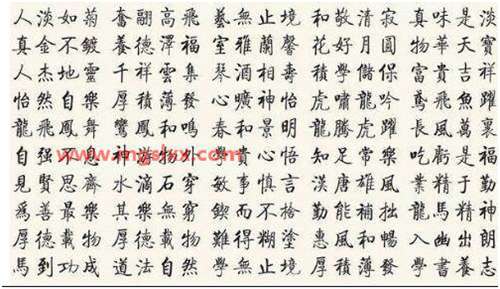 人淡如菊 奮翮高飛 藝無止境 和敬清寂 真味是淡
真金不鍍 養德澤福 室雅蘭馨 花好月圓 物華天寶
人杰地靈 千祥雲集 琴酒相壽 積學儲保 富貴吉祥
怡然自樂 厚積薄發 心曠神怡 虎嘯龍吟 鳶飛魚躍
龍飛鳳舞 鸞鳳和鳴 春和景明 龍騰虎躍 長風萬裏
自強不息 神游物外 學貴心悟 知足常樂 吃虧是福
見賢思齊 水滴石穿 敏事慎言 漢唐雄風 業精于勤
爲善最樂 其樂無窮 鍥而不捨 勤能補拙 龍馬精神
厚德載物 厚德載物 難得糊塗 惠風和暢 入幽出朗
馬到功成 道法自然 學無止境 厚積薄發 學書養志